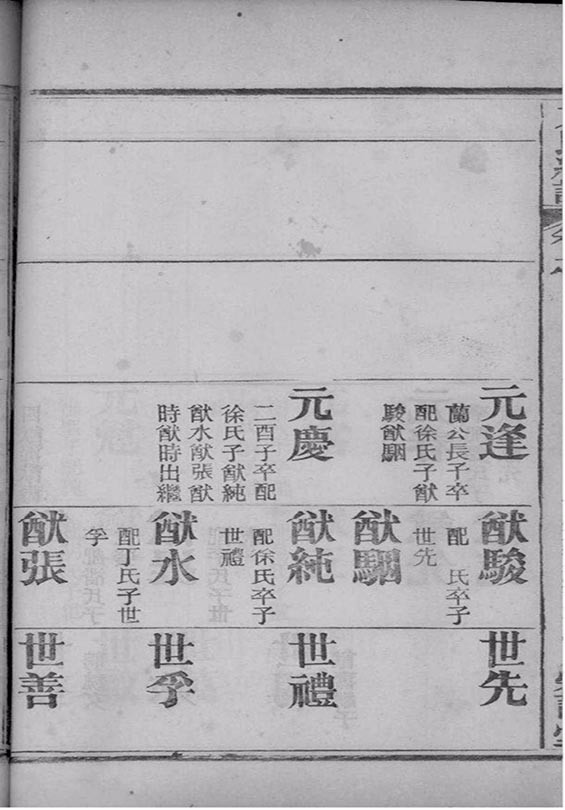 元逢
蘭公長子卒
配徐氏子猷
駿猷駰
元慶
二酉子卒配
徐氏子猷純
猷水猷張猷
時猷時出繼
猷駿
配　氏卒子
世先
猷駰
猷純
配徐氏卒子
世禮
猷水
配丁氏子世
孚
猷張
世先
世禮
世孚
世善